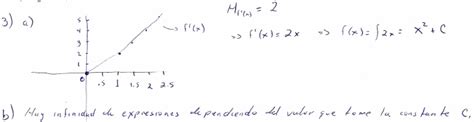 3) a)
5
4
3
2
1
0 .5 1 1.5 2 2.5
→ f'(x)
M f'(x) = 2
⇒ f'(x) = 2x ⇒ f(x) = ∫2x = x² + C
b) Hay infinidad de expresiones dependiendo del valor que tome la constante C.